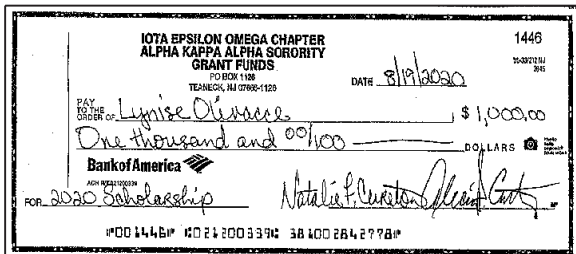 IOTA EPSILON OMEGA CHAPTER
ALPHA KAPPA ALPHA SORORITY
GRANT FUNDS
PO BOX 1126
TEANECK, NJ 07666-1126
1446
DATE 8/19/2020
PAY TO THE ORDER OF Lynise Olivacce $ 1,000.00
One thousand and 00/100 DOLLARS
Bank of America
ACH R/T 021200339
FOR 2020 Scholarship Natalie F. Cureton
⑈001446⑈ ⑆021200339⑆ 381002842778⑈